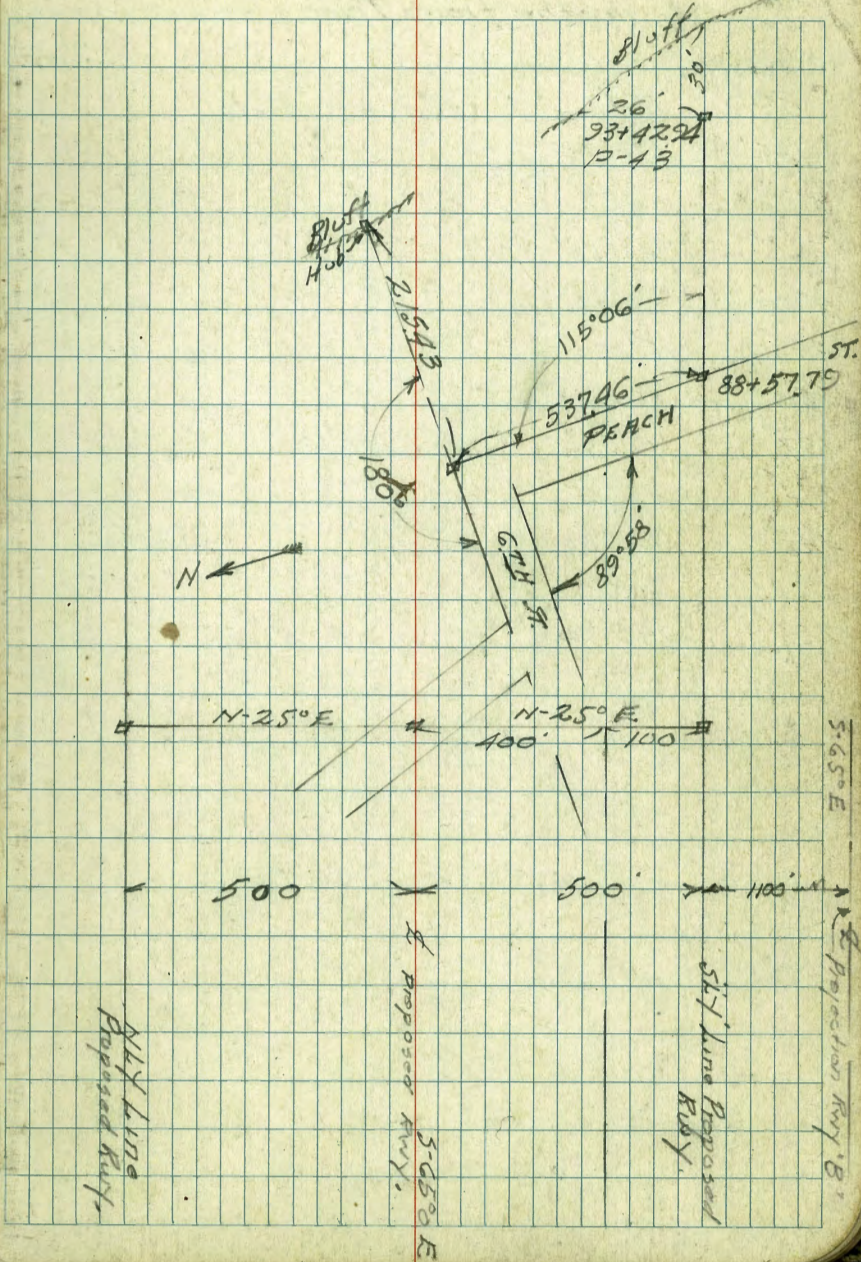 Bluff
50'
26'
93+42.94
P-43
Bluff
Hub
215.43
115°06'
ST.
537.46
88+57.79
PEACH
180°
89°58'
6TH ST.
N
N-25°E
N-25°E
400'
100
500
500'
1100'
S-65°E
℄ Projection Rwy "B"
℄ Proposed Rwy.
S-65°E
Sly Line Proposed
Rwy.
Nly Line
Proposed Rwy.